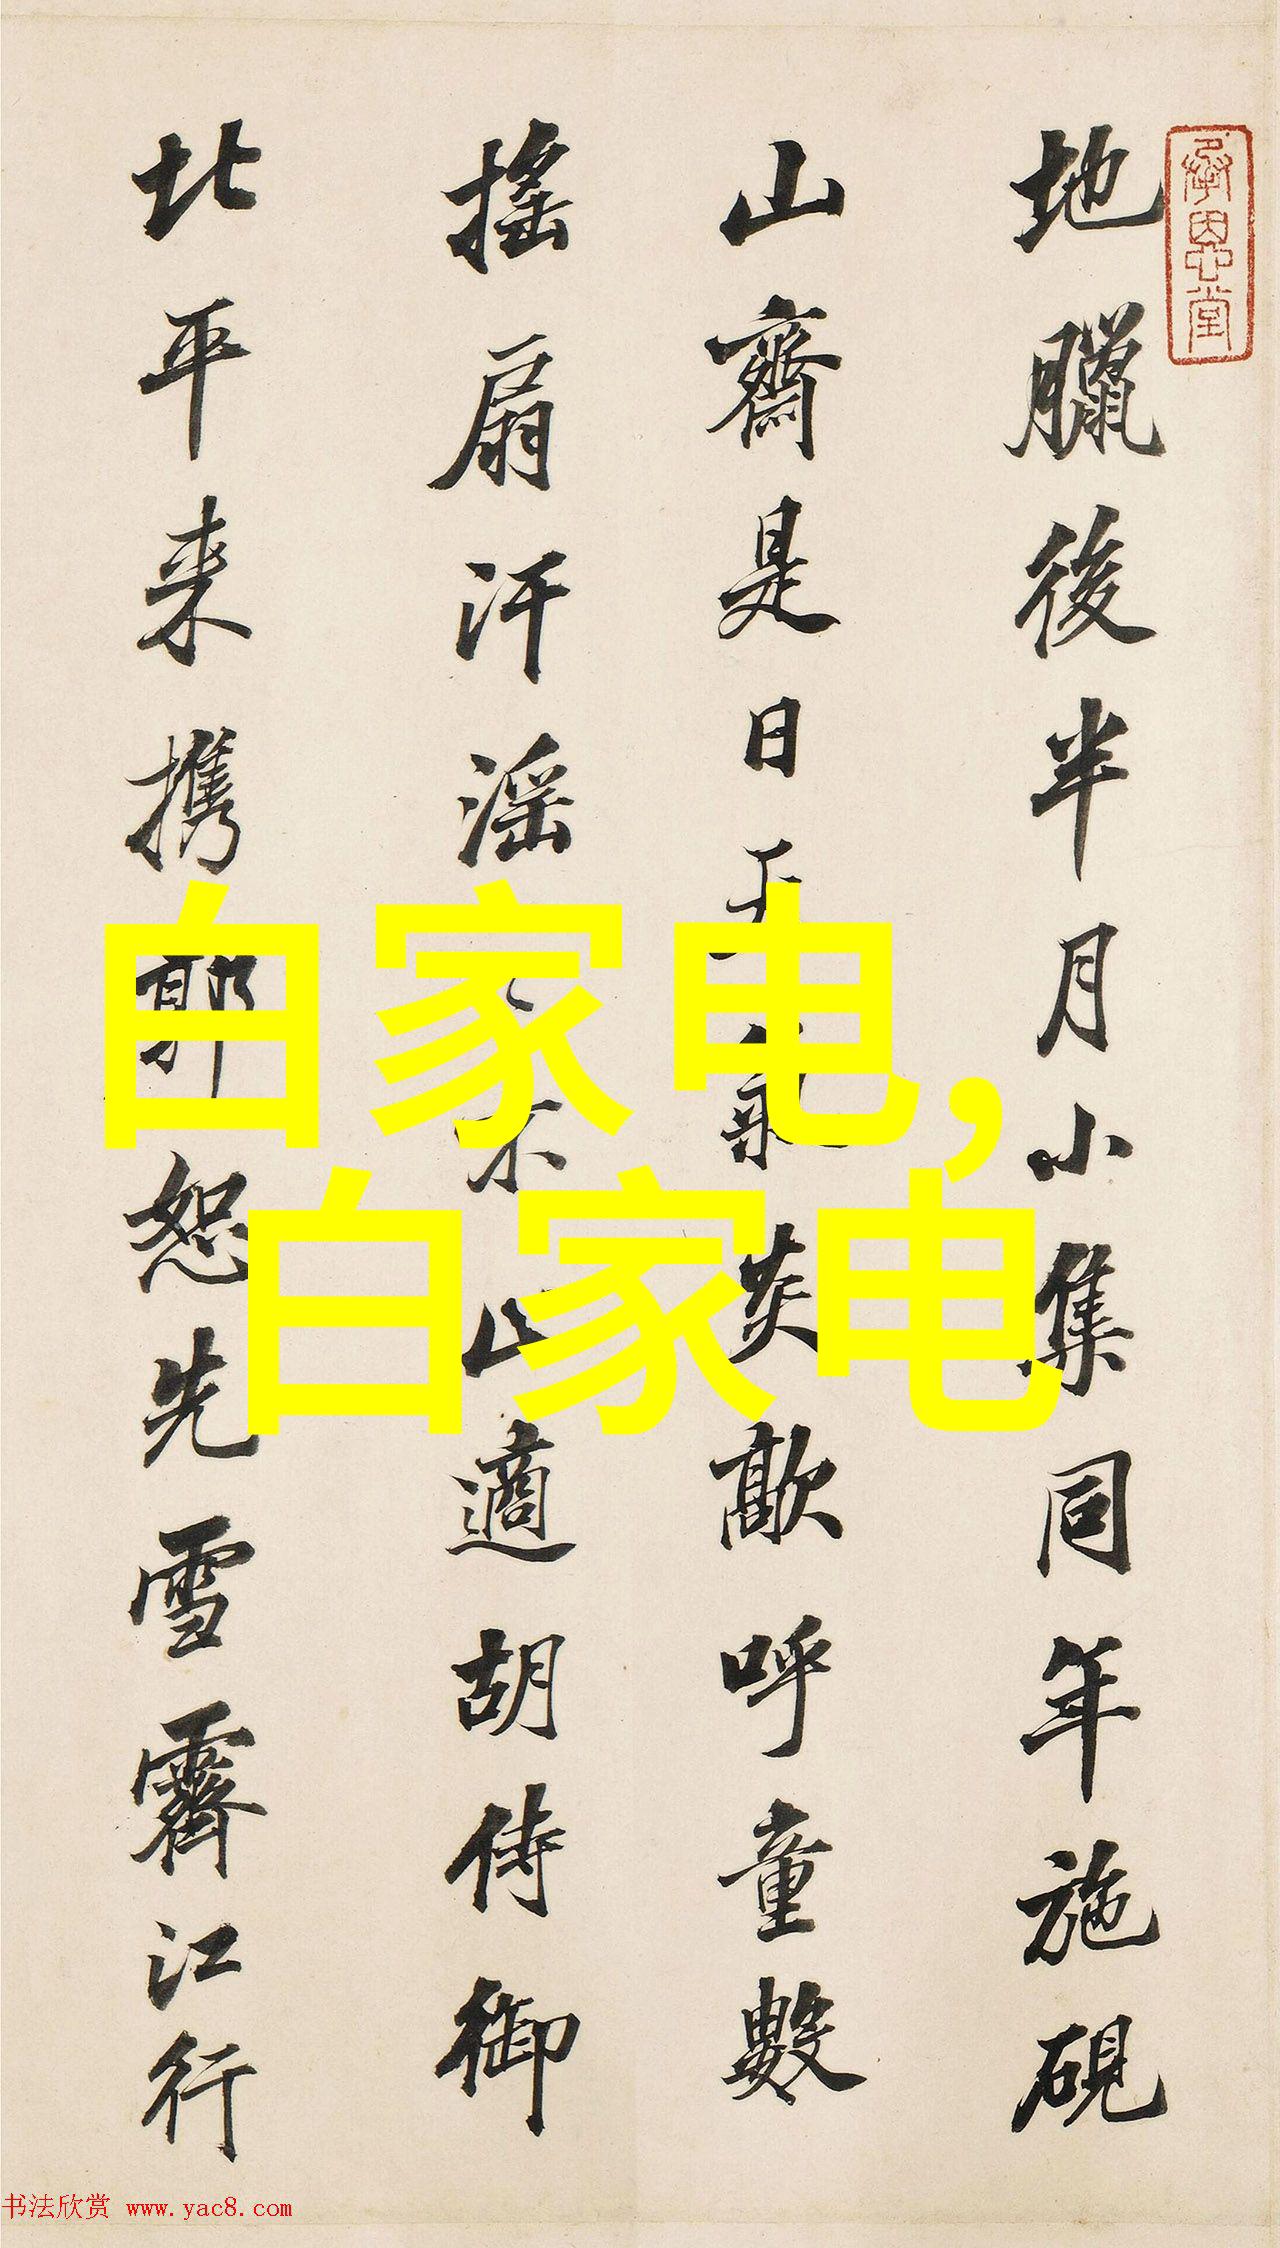 承恩堂
地臘後半月小集同年施硯
山齋是日天氣炎歊呼童數
搖扇汗滛不止適胡侍御
北平来携郭恕先雪霽江行
白家电,
白家电
书法欣赏 www.yac8.com